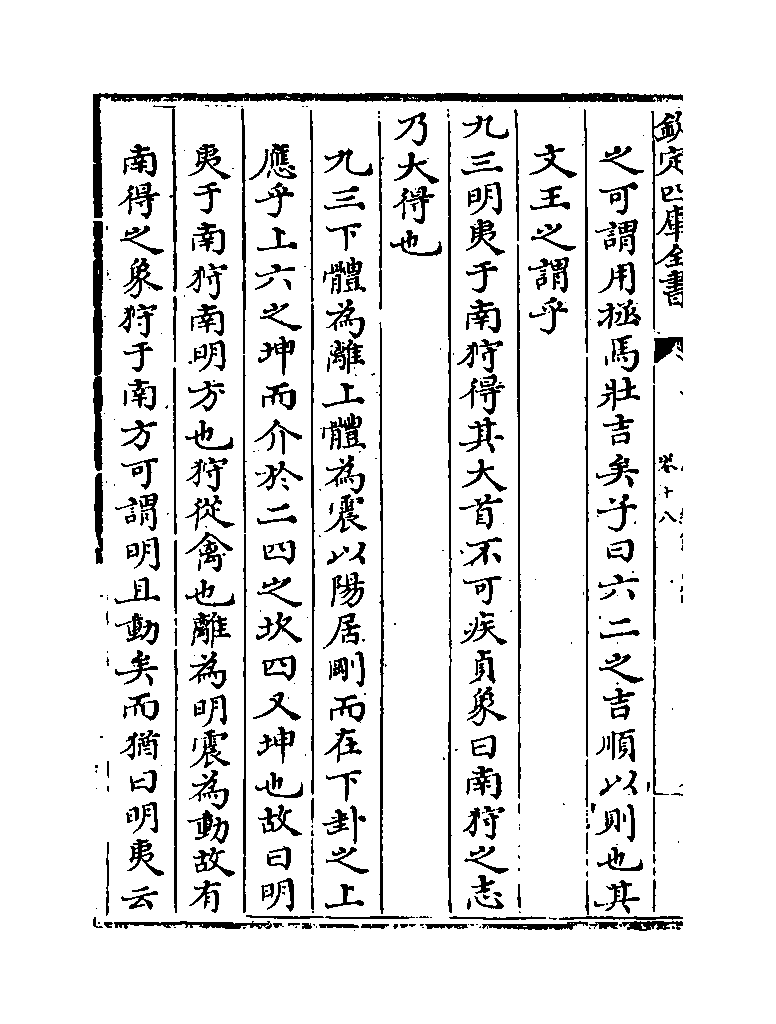 欽定四庫全書
卷十八
之可謂用拯馬壯吉矣子曰六二之吉順以則也其
文王之謂乎
九三明夷于南狩得其大首不可疾貞象曰南狩之志
乃大得也
九三下體為離上體為震以陽居剛而在下卦之上
應乎上六之坤而介於二四之坎四又坤也故曰明
夷于南狩南明方也狩從禽也離為明震為動故有
南得之象狩于南方可謂明且動矣而猶曰明夷云